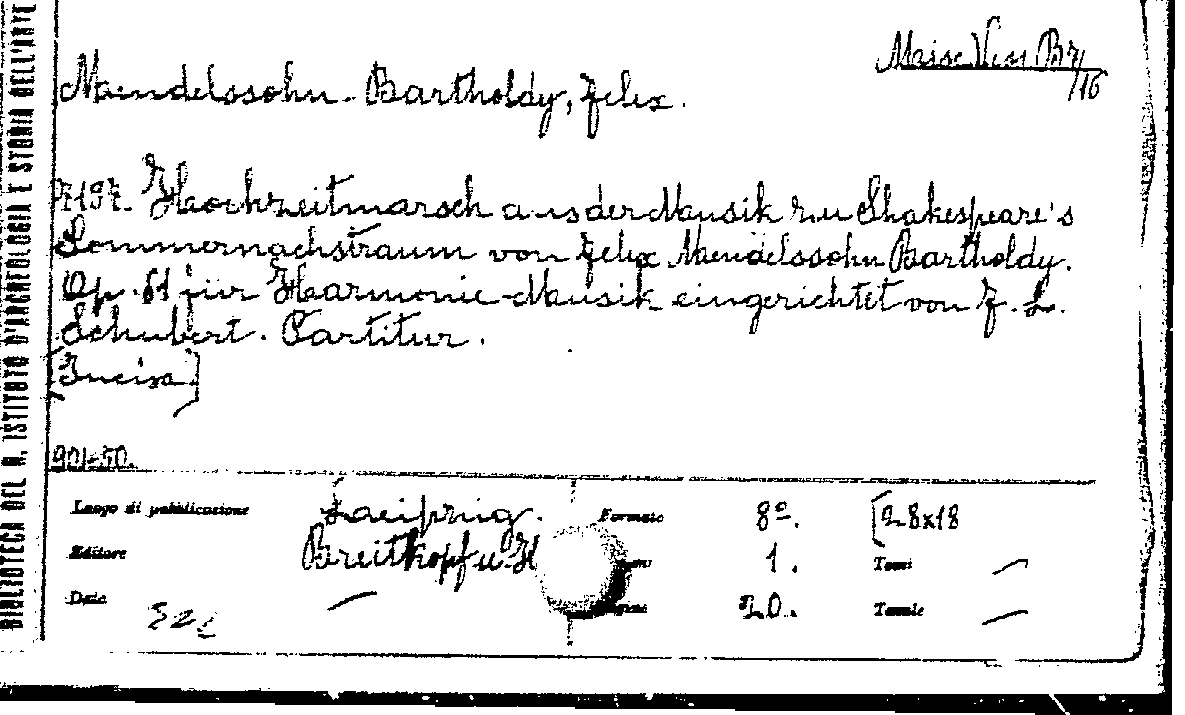 BIBLIOTECA DEL R. ISTITUTO D'ARCHEOLOGIA E STORIA DELL'ARTE
Mendelssohn-Bartholdy, Felix.
7197. Hochzeitmarsch aus der Musik zu Shakespeare's
Sommernachstraum von Felix Mendelssohn Bartholdy.
Op. 61 für Harmonie-Musik eingerichtet von F. L.
Schubert. Partitur.
[Incisa]
901-50.
Luogo di pubblicazione Leipzig. Formato 8º. [28x18
Editore Breitkopf u. H 1. Tomi —
Data — 20. Tavole —